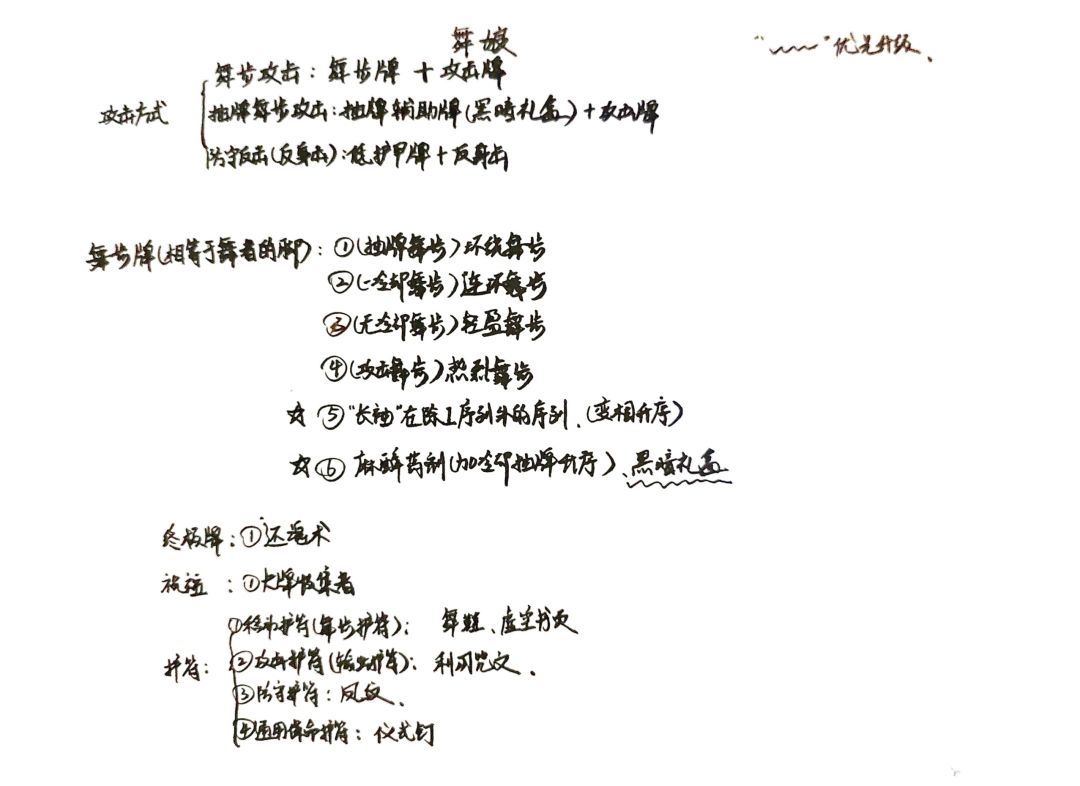 舞娘
"﹏﹏"优先升级.
舞步攻击：舞步牌 + 攻击牌
攻击方式
抽牌舞步攻击：抽牌辅助牌(黑暗礼盒) + 攻击牌
防守反击(反身击)：低护甲牌 + 反身击
舞步牌(相等于舞者的脚)：①(抽牌舞步)环绕舞步
②(-冷却舞步)连环舞步
③(无冷却舞步)轻盈舞步
④(攻击舞步)热烈舞步
☆ ⑤"长袖"在除1序列外的序列.(变相升序)
☆ ⑥ 麻醉药剂(加冷却抽牌升序)、黑暗礼盒
终极牌：①还魂术
祝福：①大牌收集者
①移动护符(舞步护符)：舞鞋、虚空书页
护符：
②攻击护符(输出护符)：利刃咒文.
③防守护符：风纹.
④通用保命护符：仪式钉